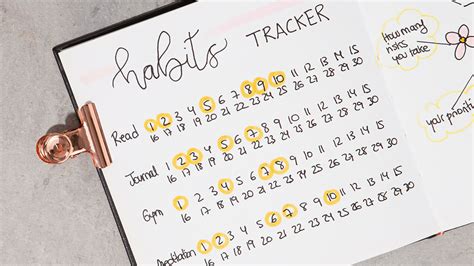 habits TRACKER
Read 1 2 3 4 5 6 7 8 9 10 11 12 13 14 15
16 17 18 19 20 21 22 23 24 25 26 27 28 29 30
Journal 1 2 3 4 5 6 7 8 9 10 11 12 13 14 15
16 17 18 19 20 21 22 23 24 25 26 27 28 29 30
Gym 1 2 3 4 5 6 7 8 9 10 11 12 13 14 15
16 17 18 19 20 21 22 23 24 25 26 27 28 29 30
Meditation 1 2 3 4 5 6 7 8 9 10 11 12 13 14 15
16 17 18 19 20 21 22 23 24 25 26 27 28 29 30
How many
risks
you take
your